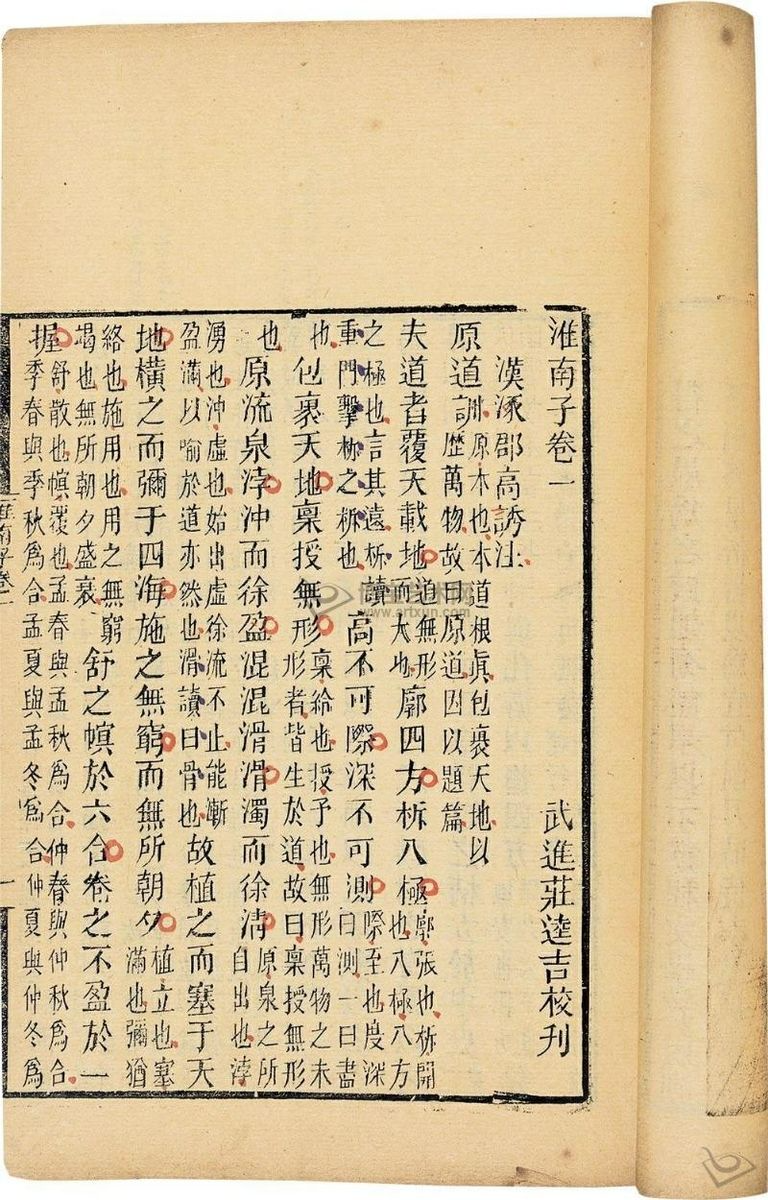 淮南子卷一　武進莊逵吉校刊
漢涿郡高誘注
原道訓原本也本道根眞包裹天地以歷萬物故曰原道因以題篇
夫道者覆天載地道無形而大也廓四方柝八極廓張也柝開也八極八方
之極也言其遠柝讀重門擊柝之柝也高不可際深不可測際至也度深曰測一曰盡
也包裹天地稟授無形稟給也授予也無形萬物之未形者皆生於道故曰稟授無形
也原流泉浡沖而徐盈混混滑滑濁而徐淸原泉之所自出也浡
湧也沖虛也始出虛徐流不止能漸盈滿以喻於道亦然也滑讀曰骨也故植之而塞于天
地橫之而彌于四海施之無窮而無所朝夕植立也塞滿也彌猶
絡也施用也用之無窮竭也無所朝夕盛衰舒之幎於六合卷之不盈於一
握舒散也幎覆也孟春與孟秋爲合仲春與仲秋爲合季春與季秋爲合孟夏與孟冬爲合仲夏與仲冬爲
淮南子卷一　一
博宝艺术网
www.artxun.com